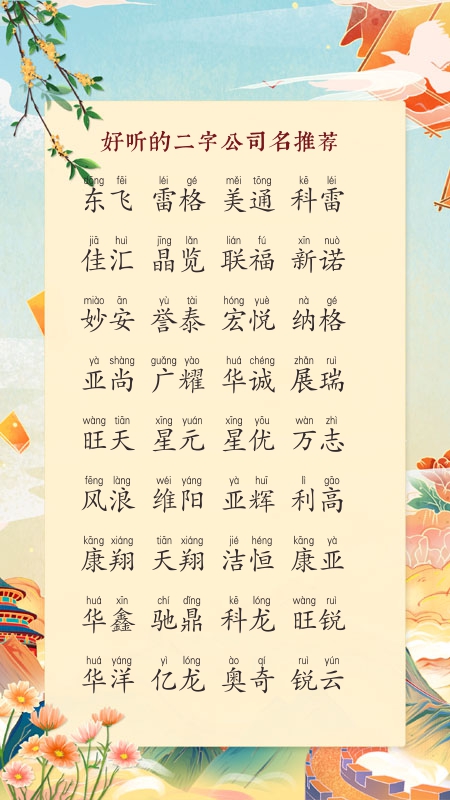 好听的二字公司名推荐
dōng fēi léi gé měi tōng kē léi
东飞 雷格 美通 科雷
jiā huì jīng lǎn lián fú xīn nuò
佳汇 晶览 联福 新诺
miào ān yù tài hóng yuè nà gé
妙安 誉泰 宏悦 纳格
yà shàng guǎng yào huá chéng zhǎn ruì
亚尚 广耀 华诚 展瑞
wàng tiān xīng yuán xīng yōu wàn zhì
旺天 星元 星优 万志
fēng làng wéi yáng yà huī lì gāo
风浪 维阳 亚辉 利高
kāng xiáng tiān xiáng jié héng kāng yà
康翔 天翔 洁恒 康亚
huá xīn chí dǐng kē lóng wàng ruì
华鑫 驰鼎 科龙 旺锐
huá yáng yì lóng ào qí ruì yún
华洋 亿龙 奥奇 锐云